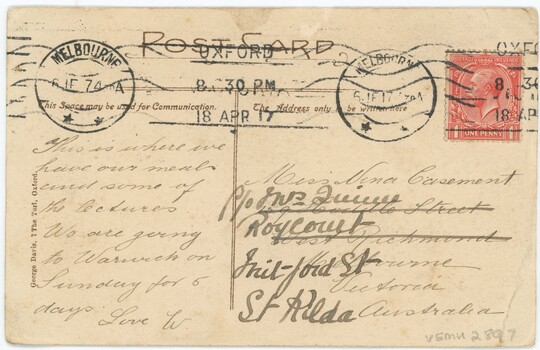 POST CARD
MELBOURNE
OXFORD
8.30 PM
18 APR 17
MELBOURNE
OXFO
8.30
18 AP
ONE PENNY
This Space may be used for Communication.
The Address only to be written here
This is where we
have our meals
and some of
the lectures
We are going
to Warwick on
Sunday for 6
days.
Love W.
George Davis, 7 The Turf, Oxford.
Miss Nina Casement
Street
West Richmond
Melbourne
Victoria
Australia
Roycourt
St
St Kilda
VSMH 2897